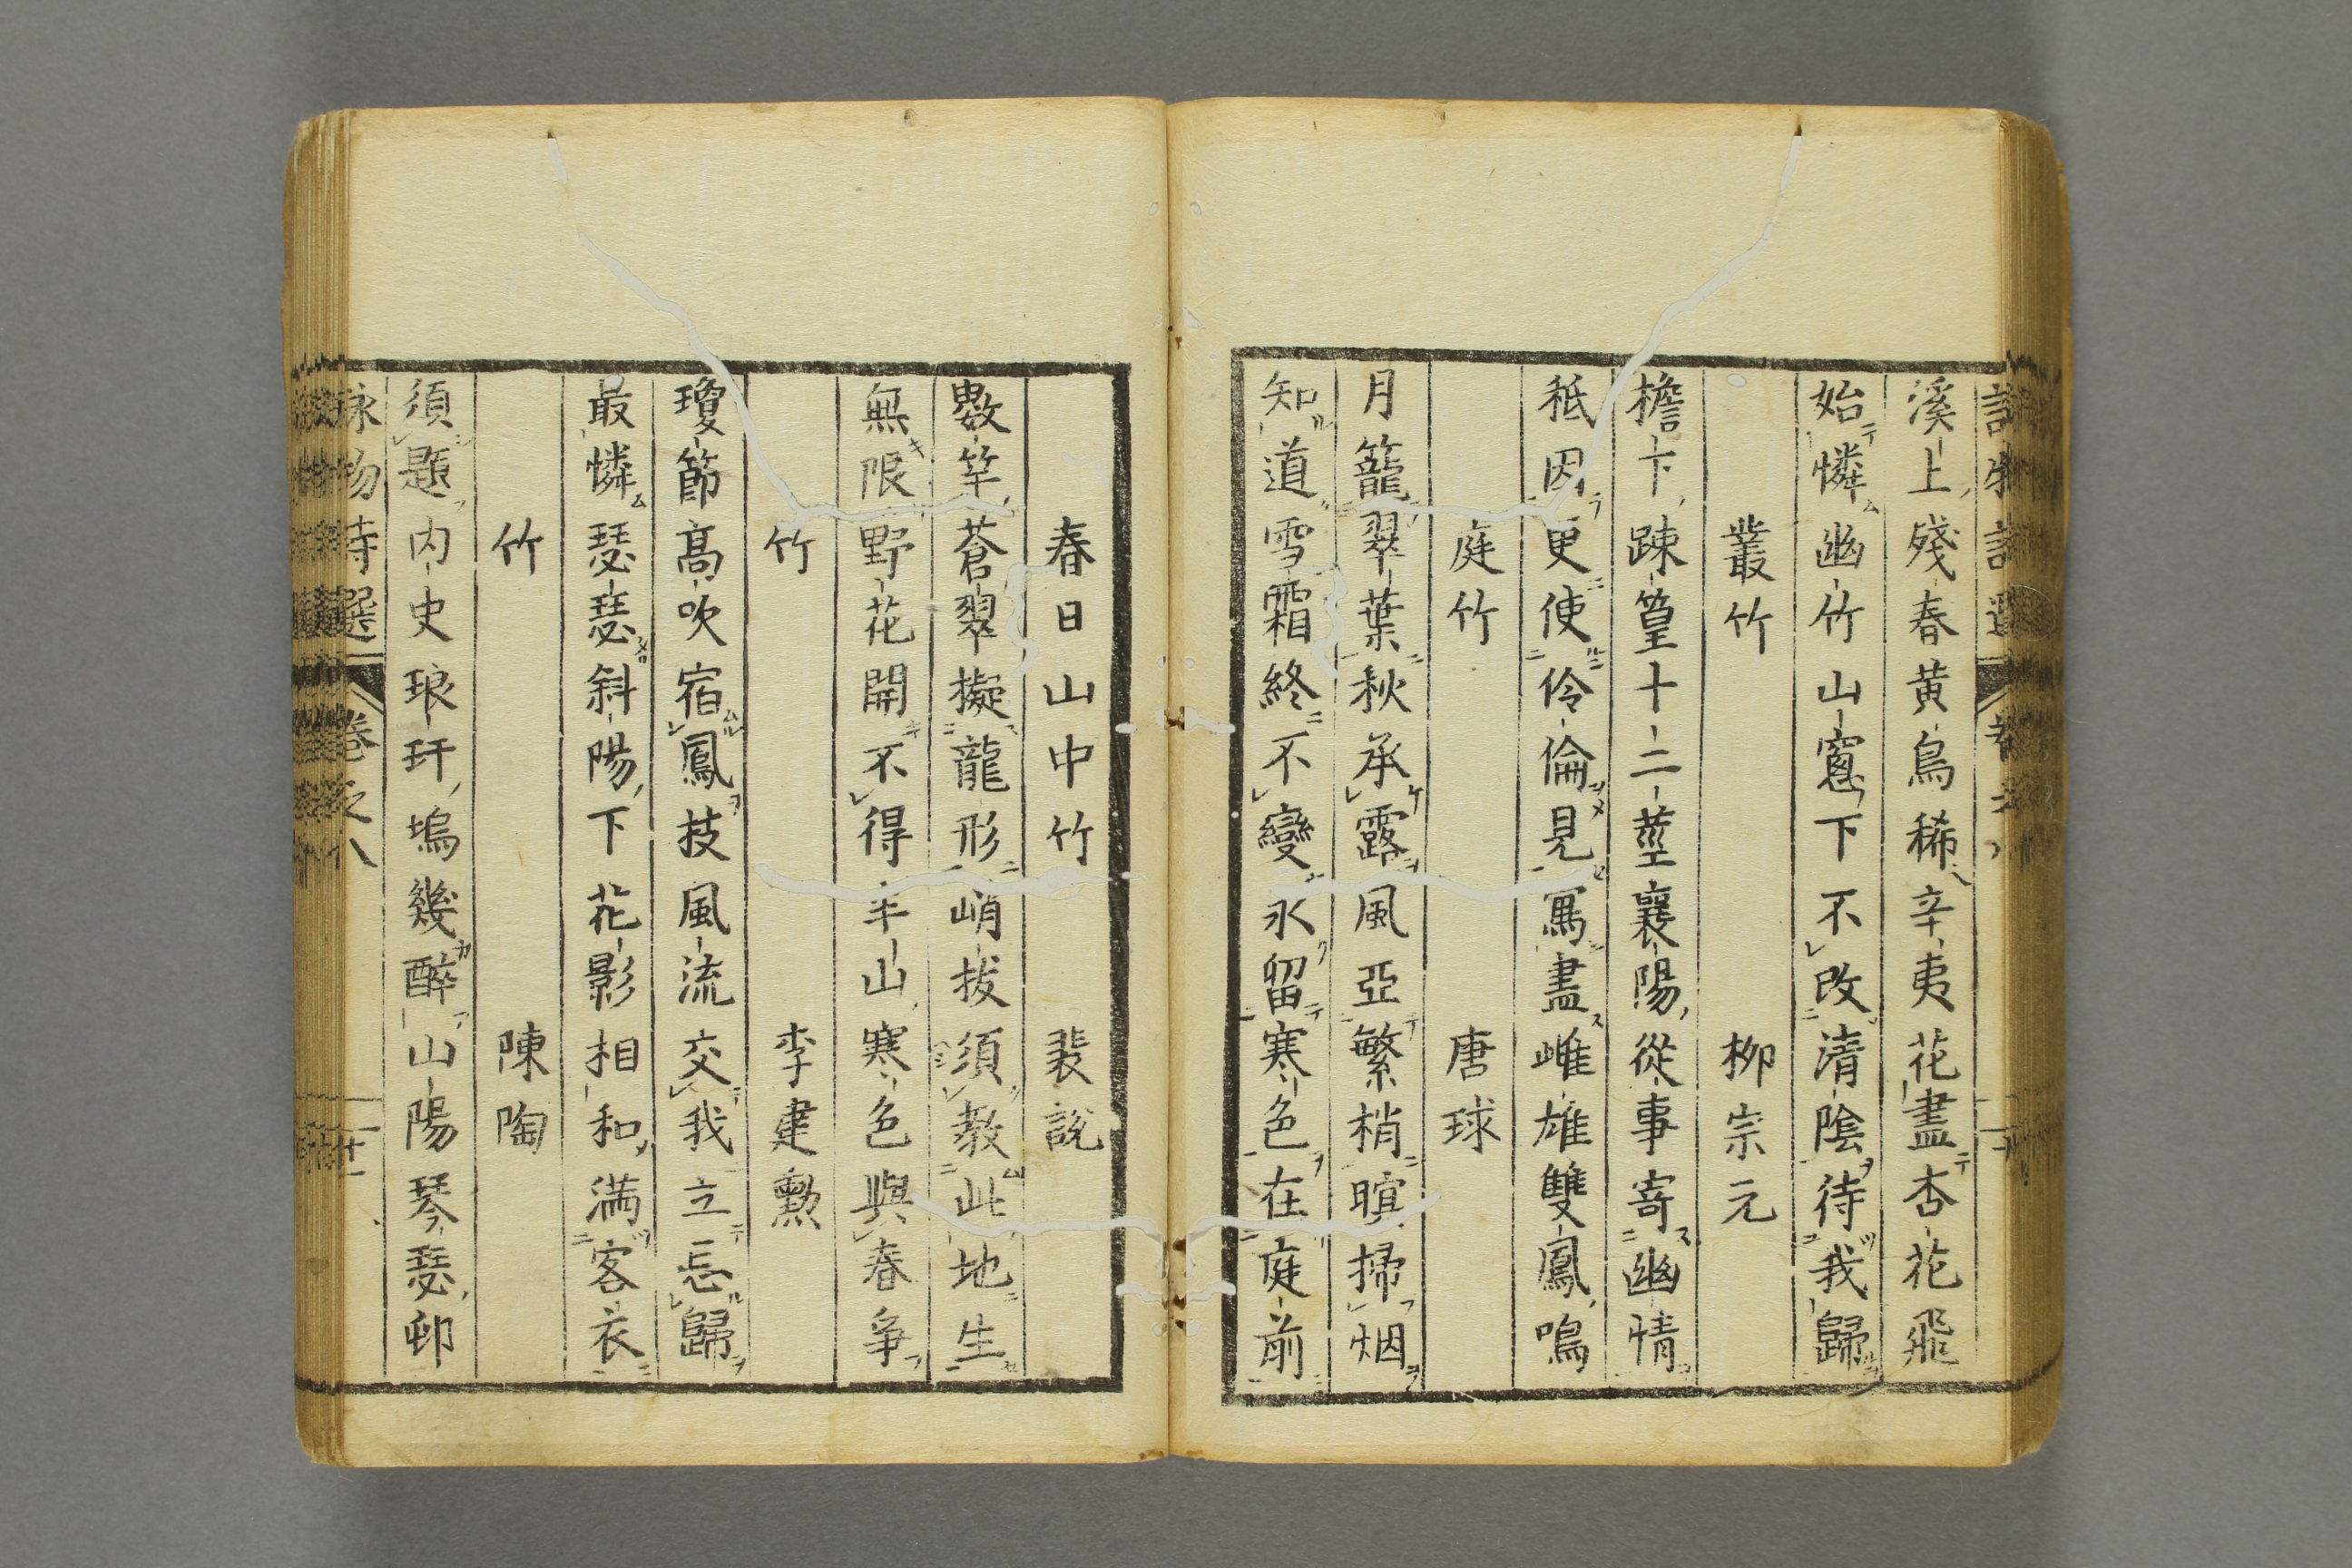 溪上殘春黄鳥稀辛夷花盡杏花飛
始憐幽竹山窓下不改清陰待我歸
叢竹 柳宗元
檐下踈篁十二莖襄陽從事寄幽情
秪因更使伶倫見寫盡雌雄雙鳳鳴
庭竹 唐球
月籠翠葉秋承露風亞繁梢暝掃烟
知道雪霜終不變永留寒色在庭前
春日山中竹 裴說
數竿蒼翠擬龍形峭拔須教此地生
無限野花開不得半山寒色與春爭
竹 李建勲
瓊節高吹宿鳳枝風流交我立忘歸
最憐瑟瑟斜陽下花影相和滿客衣
竹 陳陶
須題内史琅玕塢幾醉山陽琴瑟邨
咏物詩選 卷之八 廿一